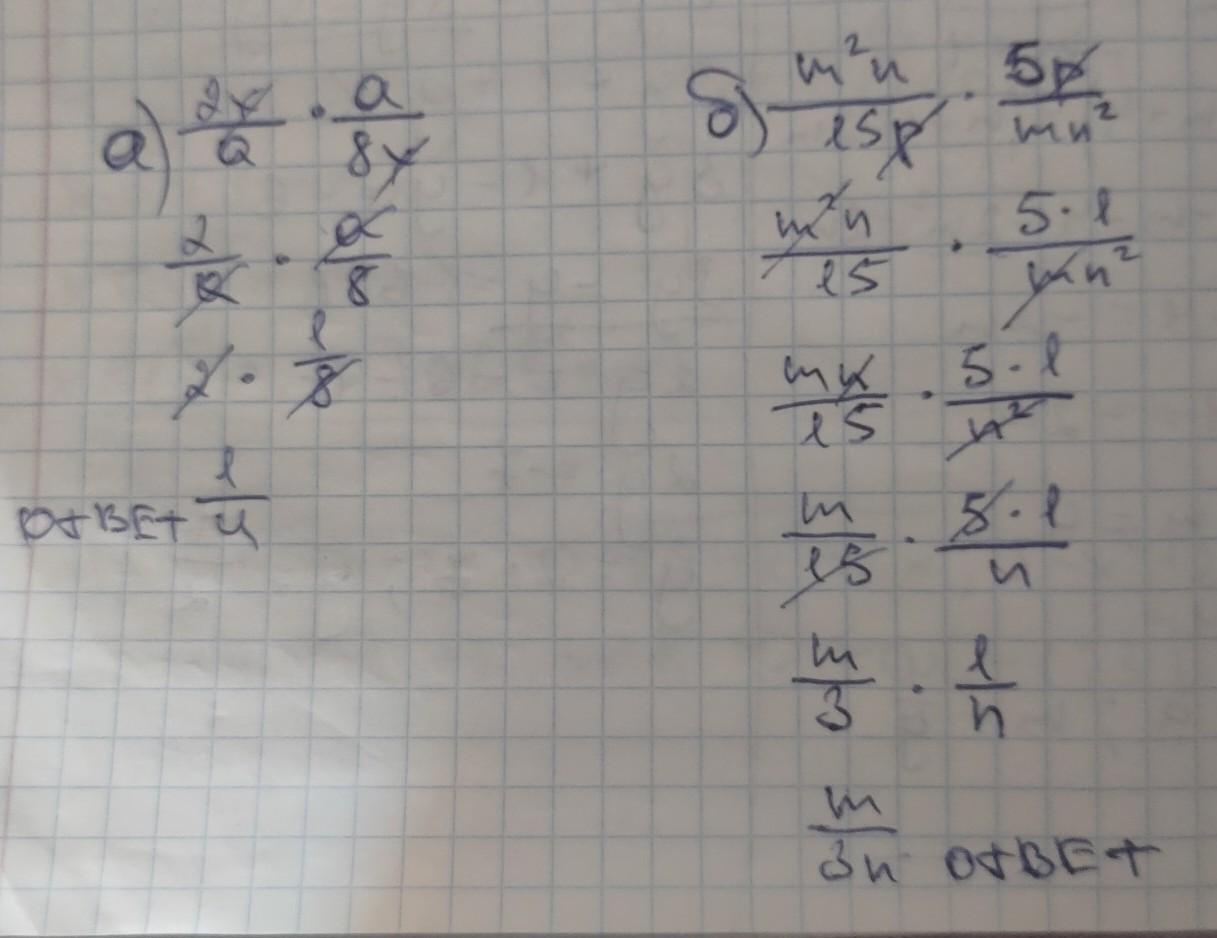 а) 2y/a · a/8y
2/a · a/8
2 · 1/8
ответ 1/4
б) m²n/15p · 5p/mn²
m²n/15 · 5·1/mn²
mn/15 · 5·1/n²
m/15 · 5·1/n
m/3 · 1/n
m/3n ответ